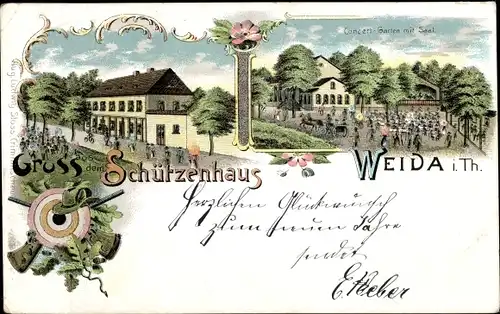 Concert-Garten mit Saal
Gruss
aus dem
Schützenhaus
WEIDA i. Th.
Herzlichen Glückwunsch
zum neuen Jahre
sendet
E. Weber